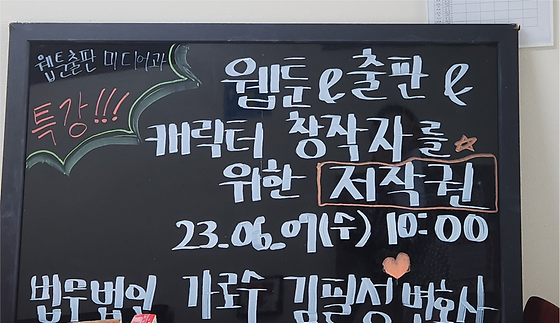 웹툰출판 미디어과
특강!!!
웹툰 & 출판 &
캐릭터 창작자를
위한 저작권
23.06.07(수) 10:00
법무법인 가로수 김필성 변호사